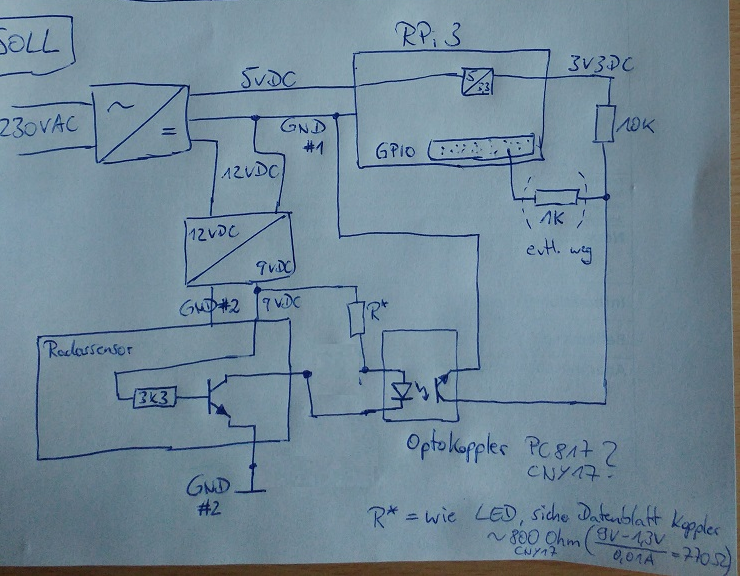 SOLL
RPi 3
5VDC
3V3DC
5
3,3
230VAC
~
=
GND
#1
10K
GPIO
12VDC
1K
evtl. weg
12VDC
9VDC
GND#2
9VDC
R*
Radarsensor
3K3
Optokoppler PC817?
CNY17?
GND
#2
R* = wie LED, siehe Datenblatt Koppler
~800 Ohm (9V-1,3V / 0,01A = 770Ω)
CNY17